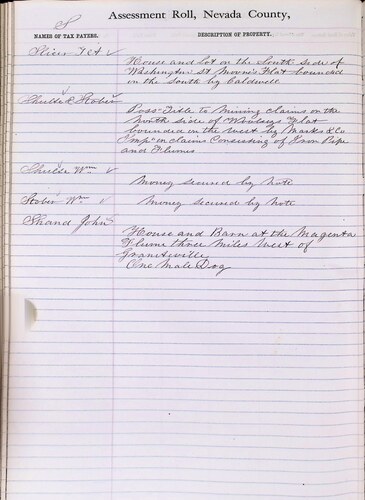 S
Assessment Roll, Nevada County,
NAMES OF TAX PAYERS.
DESCRIPTION OF PROPERTY.
Slicer T A
House and Lot on the South side of
Washington St Moore's Flat bounded
on the South by Caldwell
Shuller & Stobie
Poss Title to Mining claims on the
North side of Woolseys Flat
bounded on the west by Marks & Co
Imps on claims Consisting of Iron Pipe
and Flumes
Shuller Wm
Money secured by Note
Stobie Wm
Money secured by Note
Shand John
House and Barn at the Magenta
Flume three miles west of
Graniteville
One Male Dog